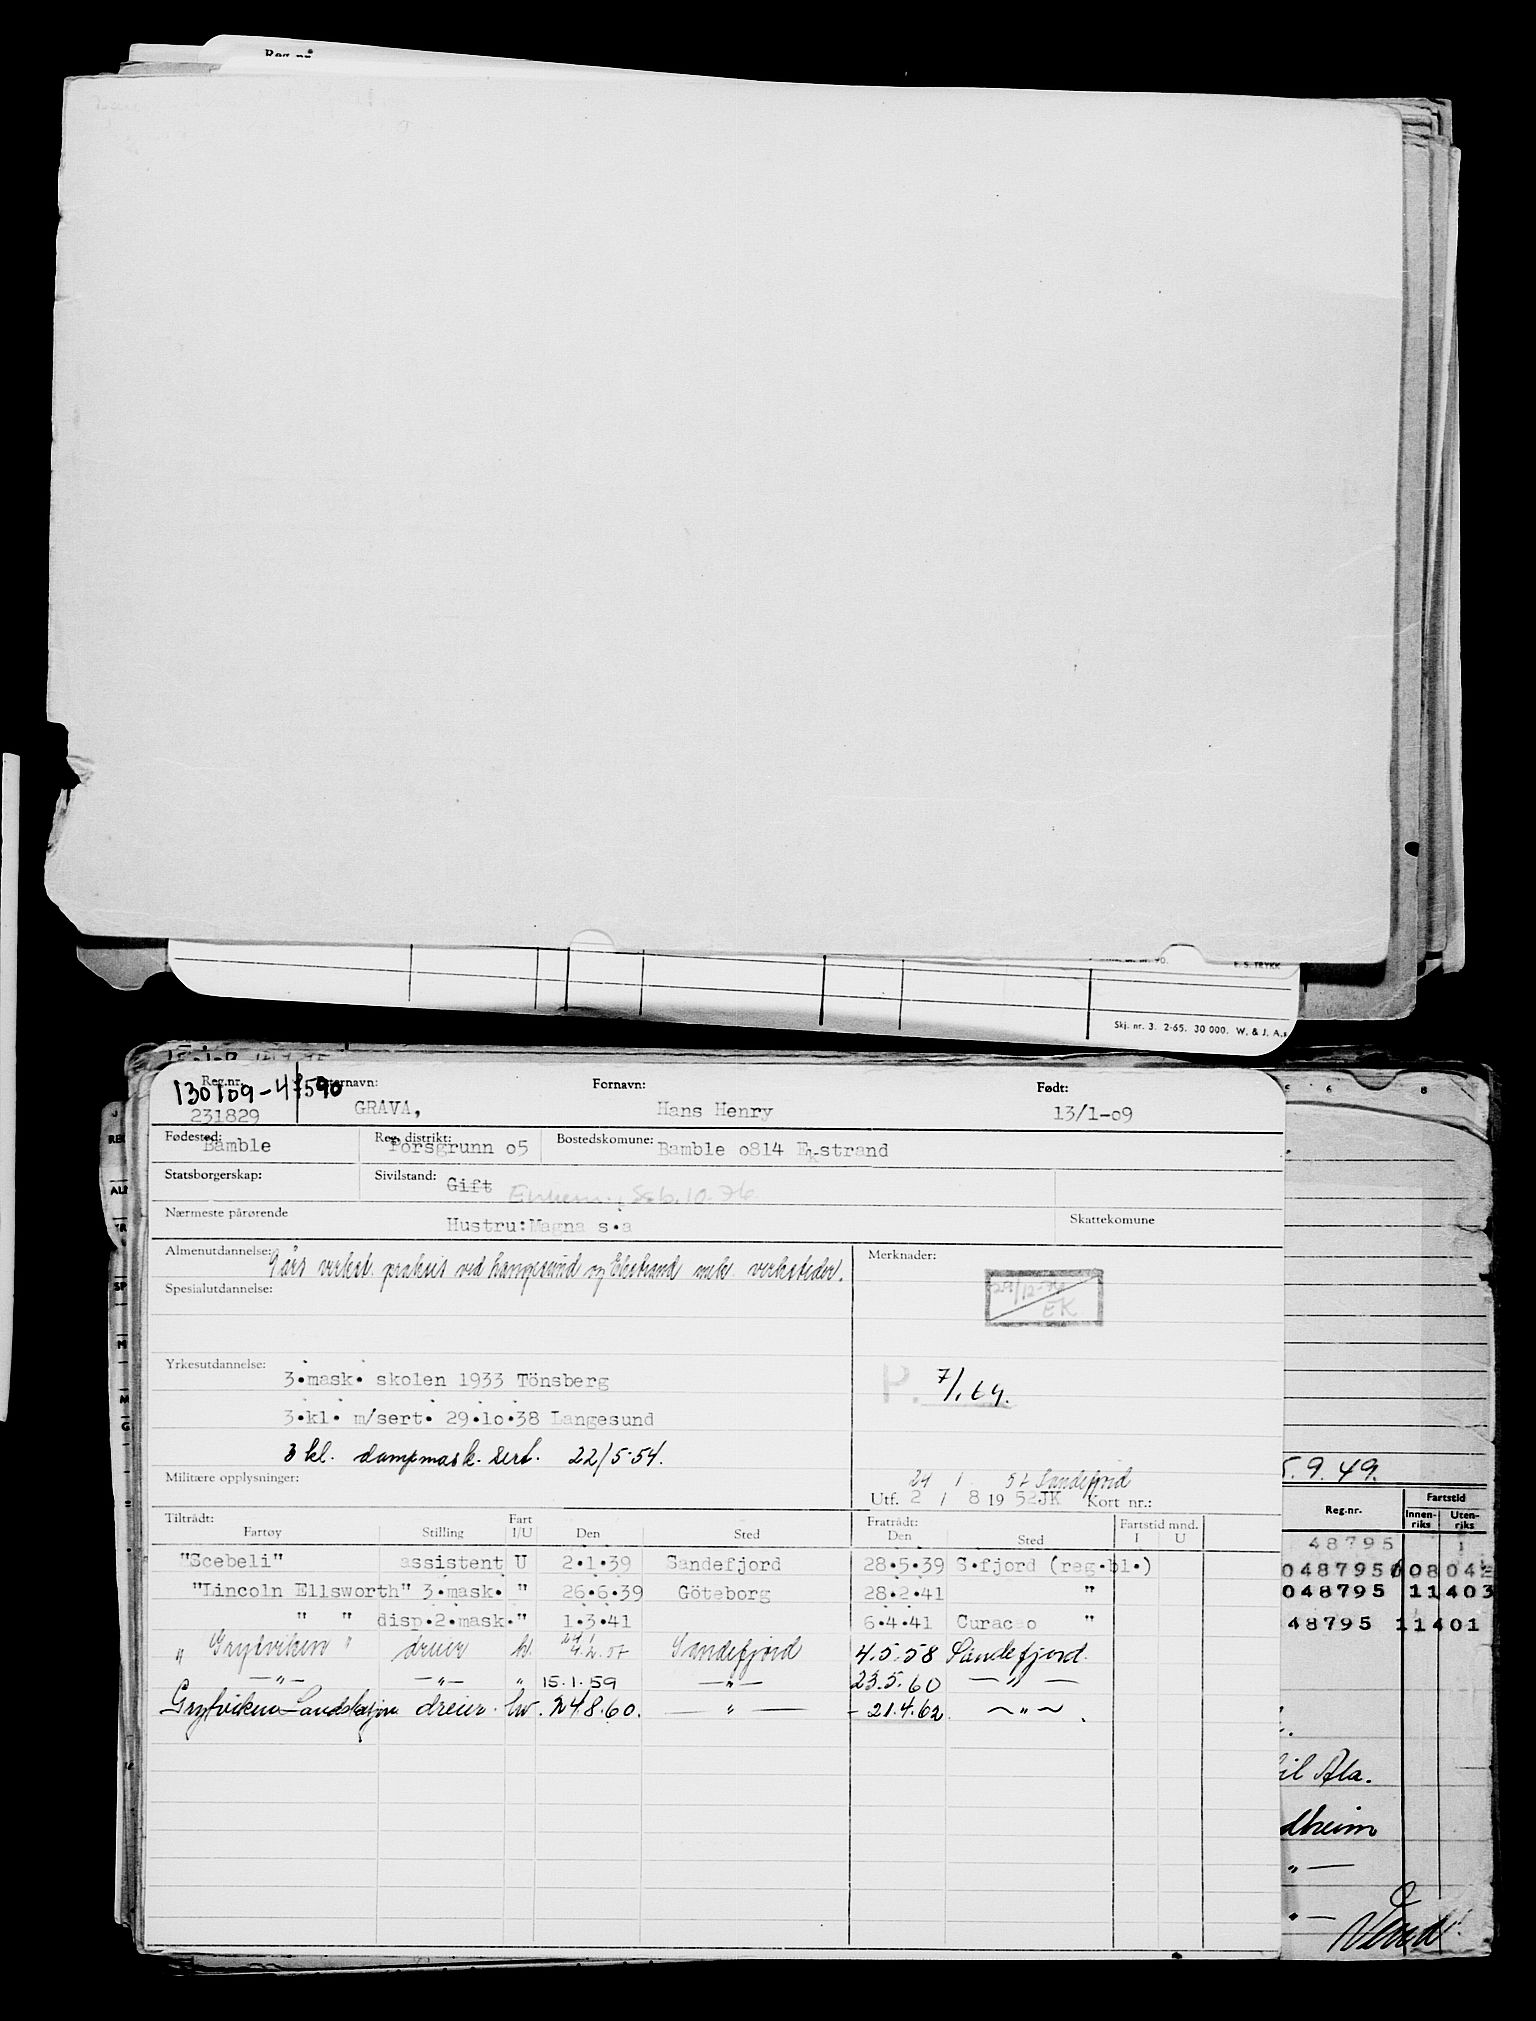 Reg.nr.
F. S. TRYKK
Skj. nr. 3. 2-65. 30 000. W. & J. A.s
Reg.nr. Etternavn: Fornavn: Født:
231829 GRAVA, Hans Henry 13/1-o9
Fødested: Reg. distrikt: Bostedskomune:
Bamble Porsgrunn o5 Bamble o814 Ekstrand
Statsborgerskap: Sivilstand: Gift
Nærmeste pårørende Hustru:Magna s.a Skattekomune
Almenutdannelse: års verkst. praksis ved Langesund og Ekstrand mek. verksteder. Merknader:
Spesialutdannelse: EK
Yrkesutdannelse: 3.mask. skolen 1933 Tönsberg P. 7/.69.
3.kl. m/sert. 29.1o.38 Langesund
3 kl. dampmask. sert. 22/5-54.
Militære opplysninger: Sandefjord
Utf. 2 / 8 19 52JK Kort nr.:
Tiltrådt: Fart Fratrådt: Fartstid mnd.
Fartøy Stilling I/U Den Sted Den Sted I U
"Scebeli" assistent U 2.1.39 Sandefjord 28.5.39 S.fjord (reg.bl.)
"Lincoln Ellsworth" 3.mask. " 26.6.39 Göteborg 28.2.41 "
" " disp.2.mask." 1.3.41 6.4.41 Curacao "
" Grytviken " dreier Sandefjord 4.5.58 Sandefjord.
—"— —"— " 15.1.59 —"— 23.5.60 —"—
Grytviken dreier. hv. 24.8.60. —"— 21.4.62. —"—
5.9.49.
Reg.nr. Fartstid
Innen-riks Uten-riks
48795 1
048795 
048795 11403
48795 11401
Ala.
dheim
"—
"—